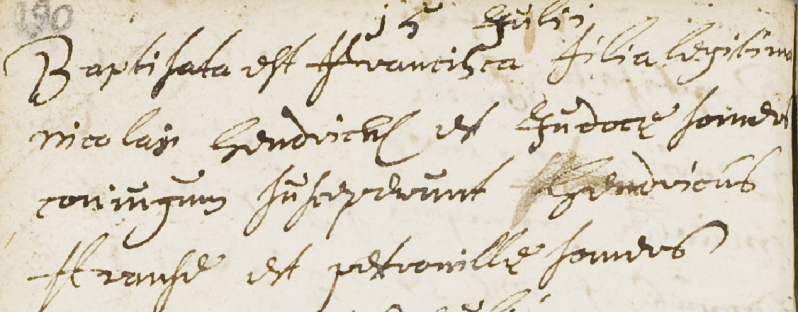 190
15 Julii
Baptisata est Francisca filia legitima
nicolai hendricks et Judocę somers
coniugum susceperunt Hendricus
Franse et petronillę somers